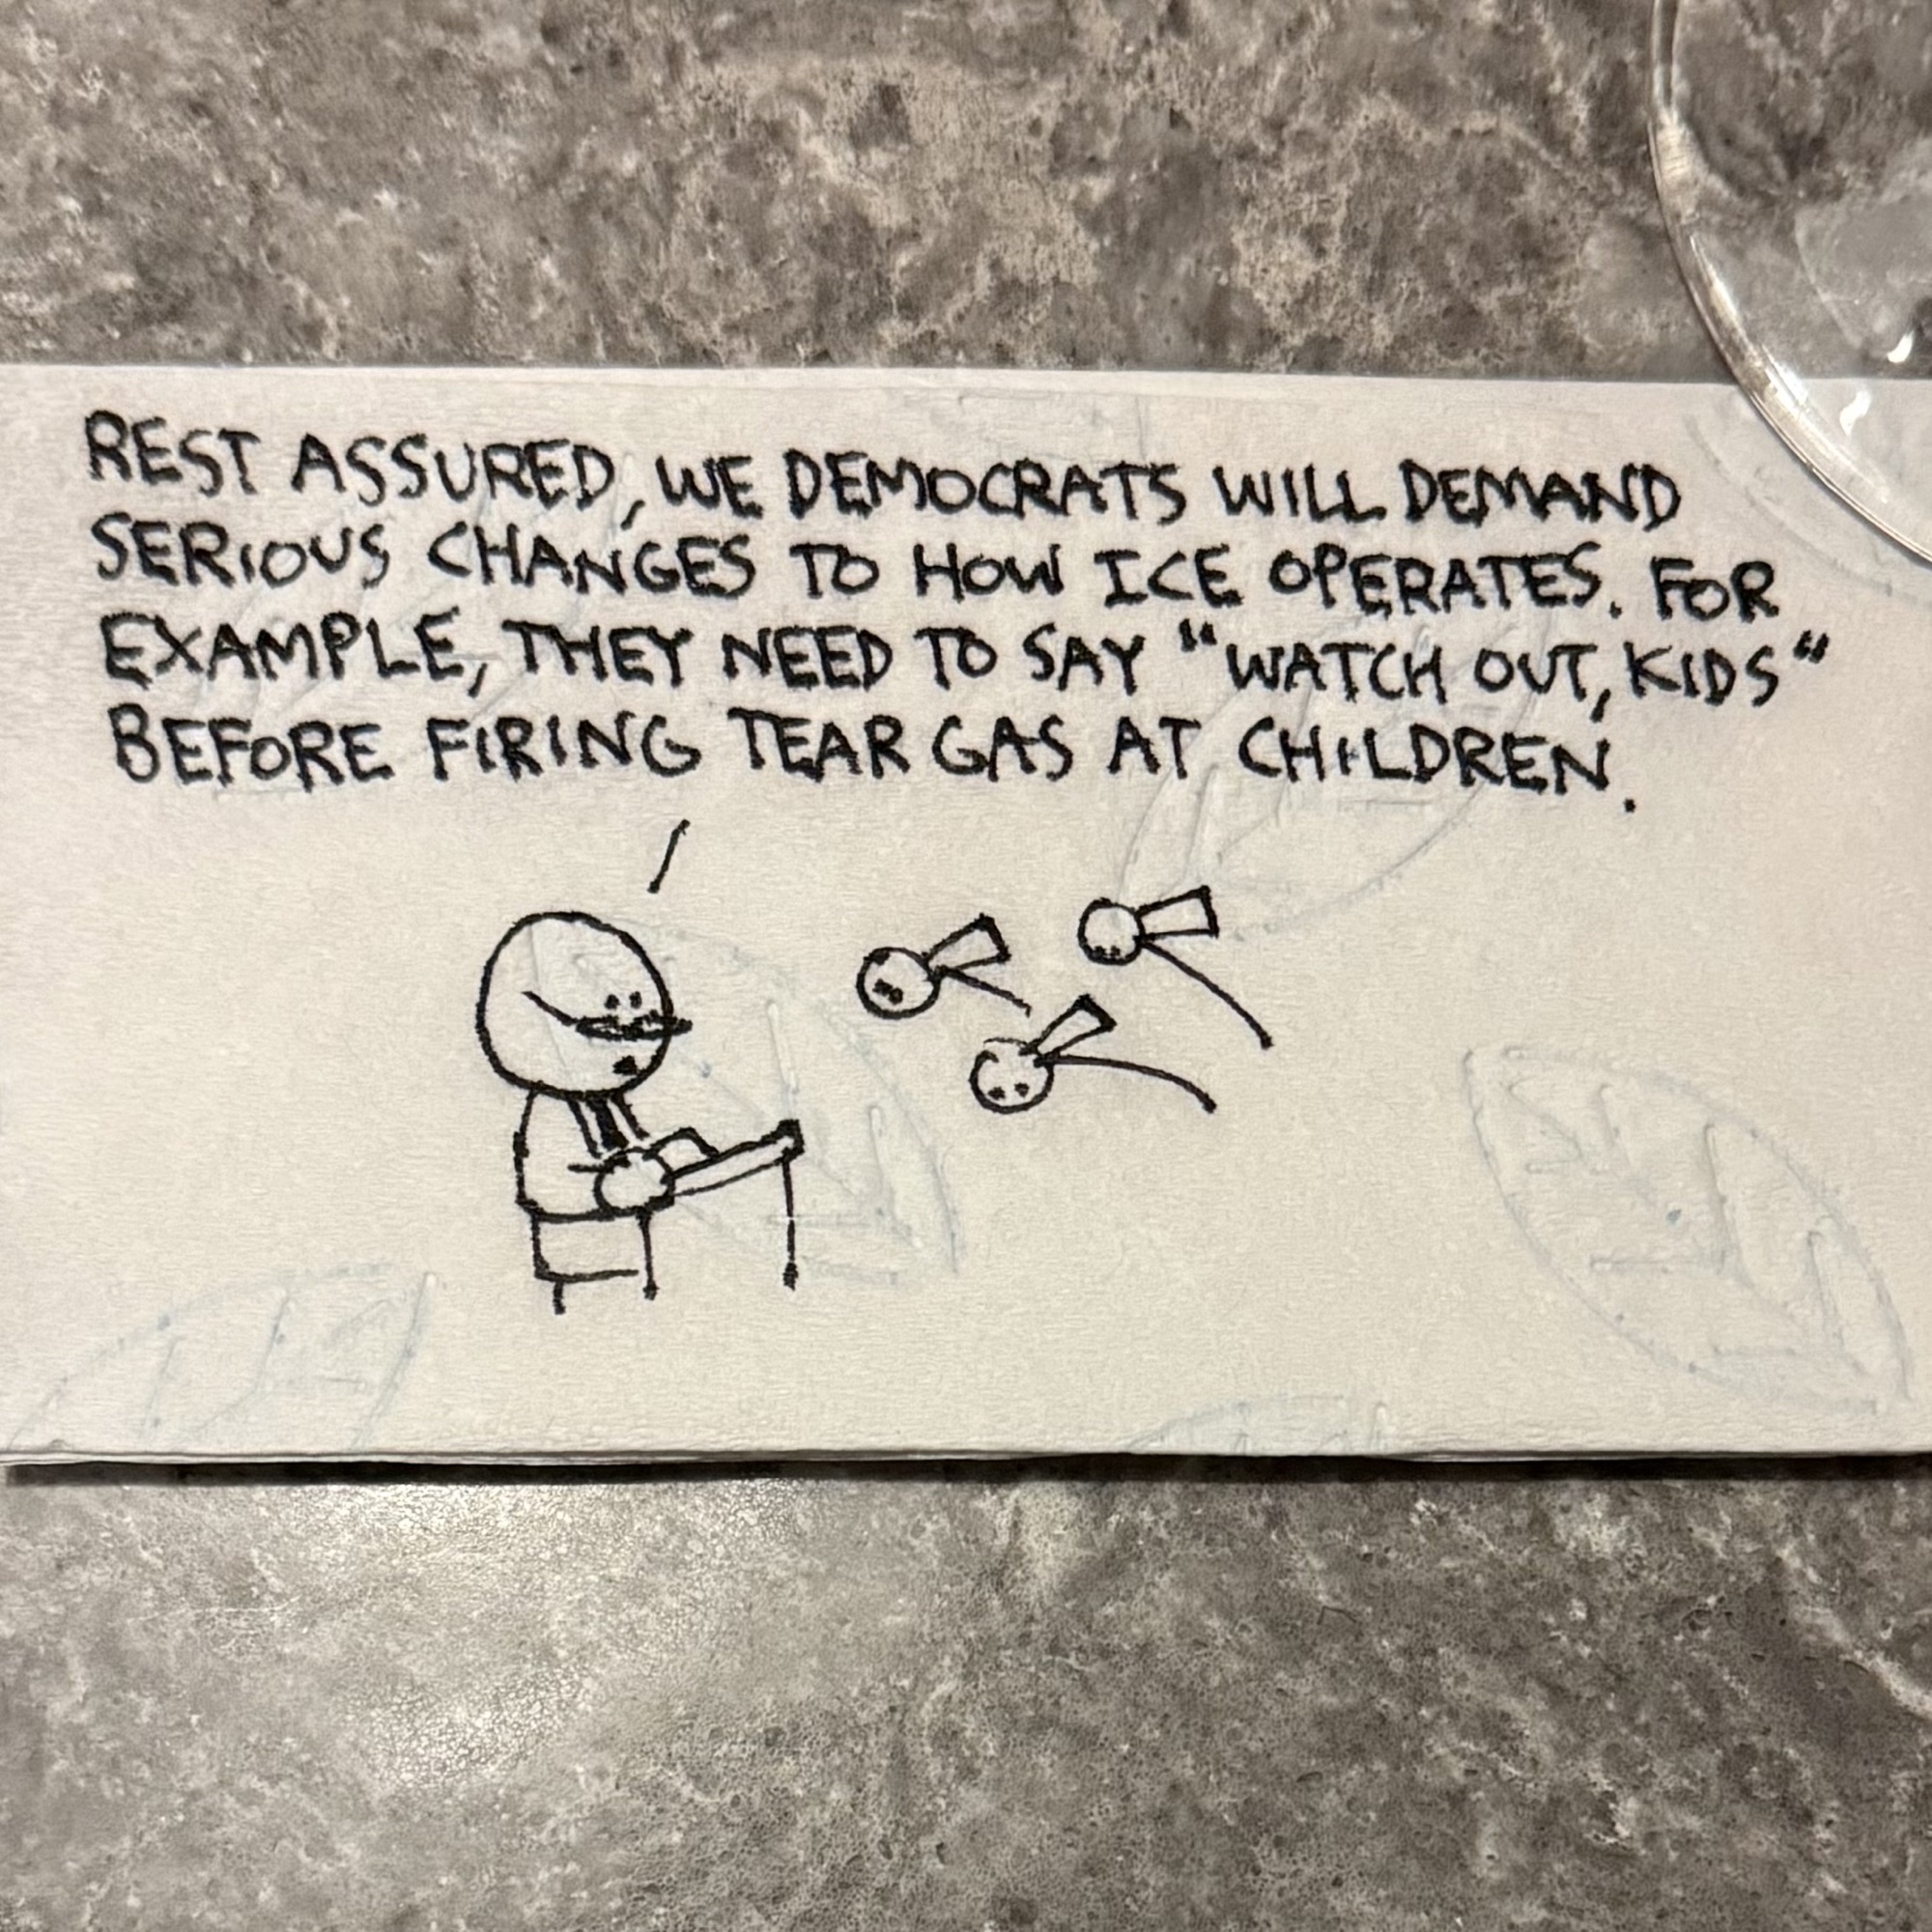 REST ASSURED, WE DEMOCRATS WILL DEMAND
SERIOUS CHANGES TO HOW ICE OPERATES. FOR
EXAMPLE, THEY NEED TO SAY "WATCH OUT, KIDS"
BEFORE FIRING TEAR GAS AT CHILDREN.